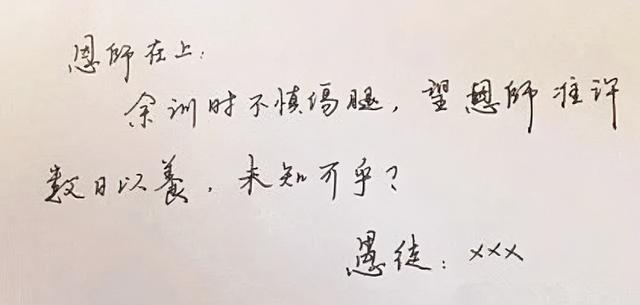 恩师在上：
余训时不慎伤腿，望恩師准许
数日以養，未知可乎？
愚徒：×××